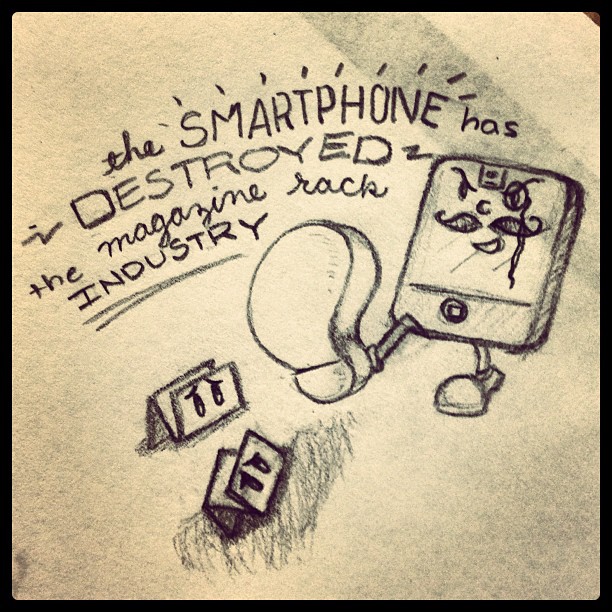 the SMARTPHONE has
DESTROYED
the magazine rack
INDUSTRY